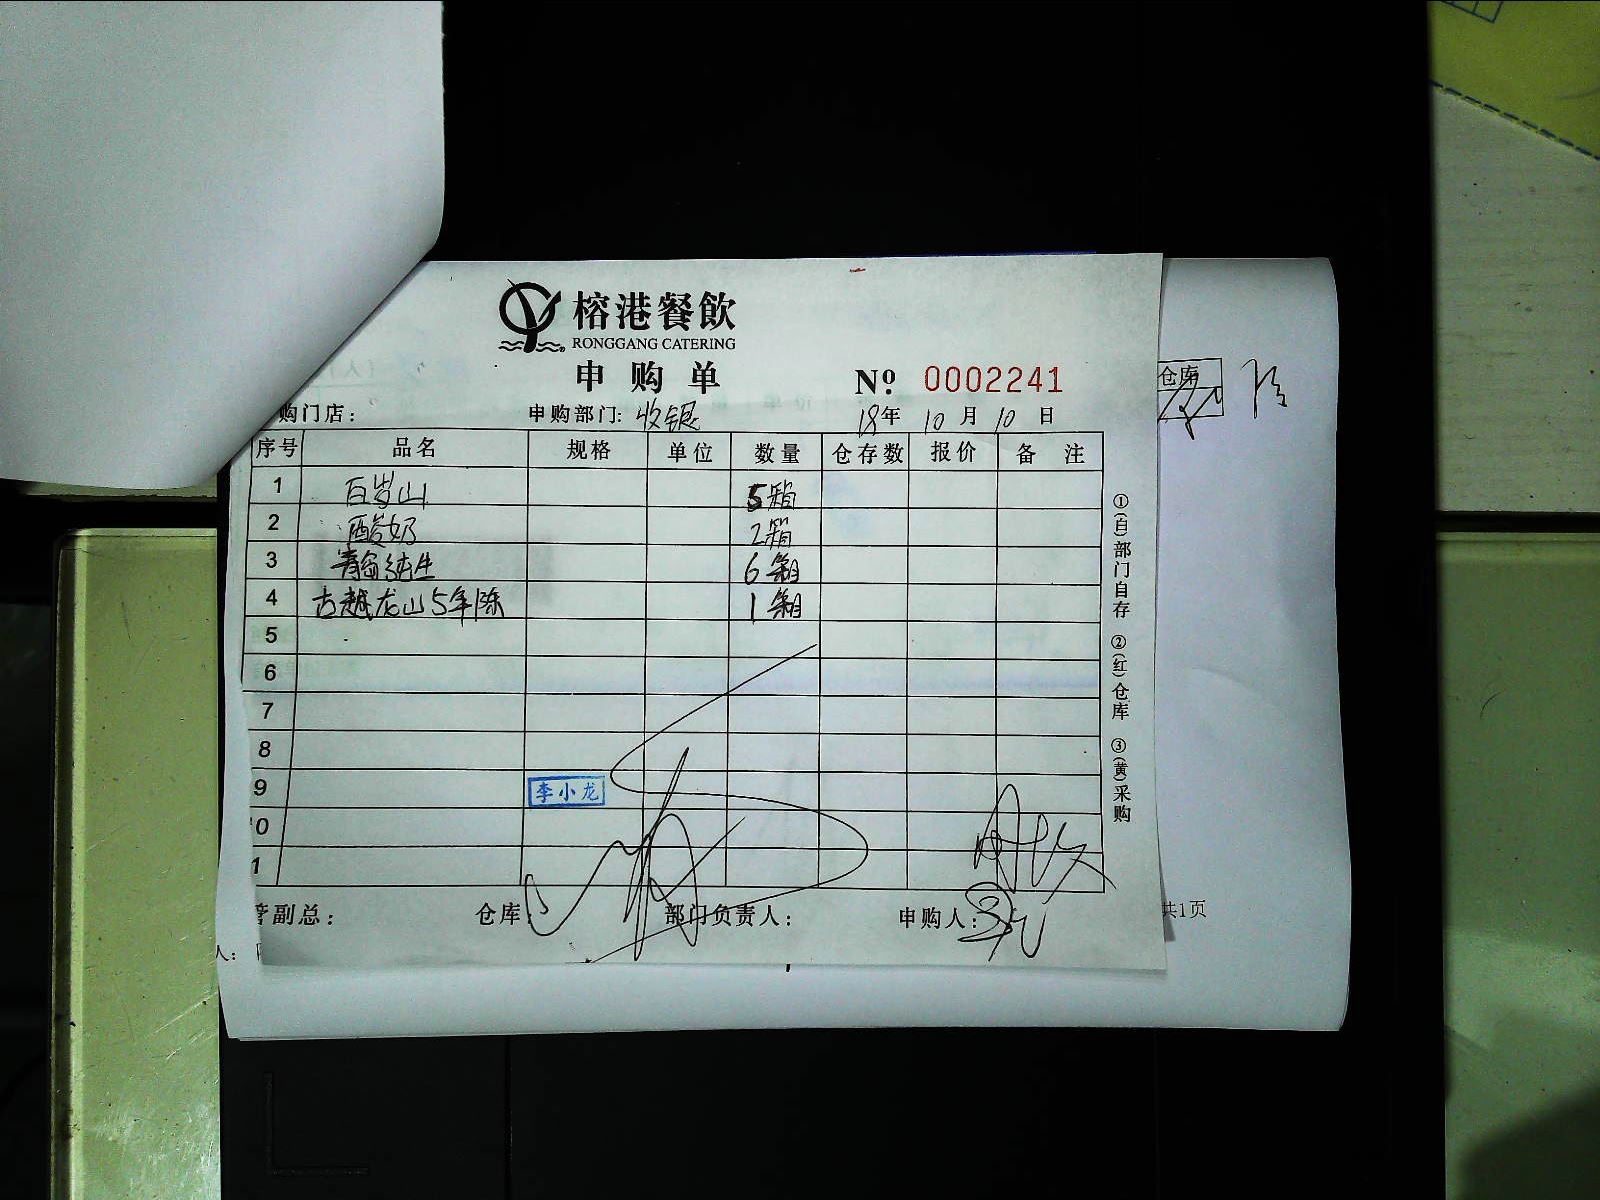 榕港餐飲
RONGGANG CATERING
申购单 No 0002241
购门店： 申购部门：收银 18年10月10日
序号 品名 规格 单位 数量 仓存数 报价 备注
1 百岁山 5箱
2 酸奶 2箱
3 青岛纯生 6箱
4 古越龙山5年陈 1箱
5
6
7
8
9 李小龙
0
1
副总： 仓库： 部门负责人： 申购人：
①(白)部门自存 ②(红)仓库 ③(黄)采购
仓库
共1页
人：